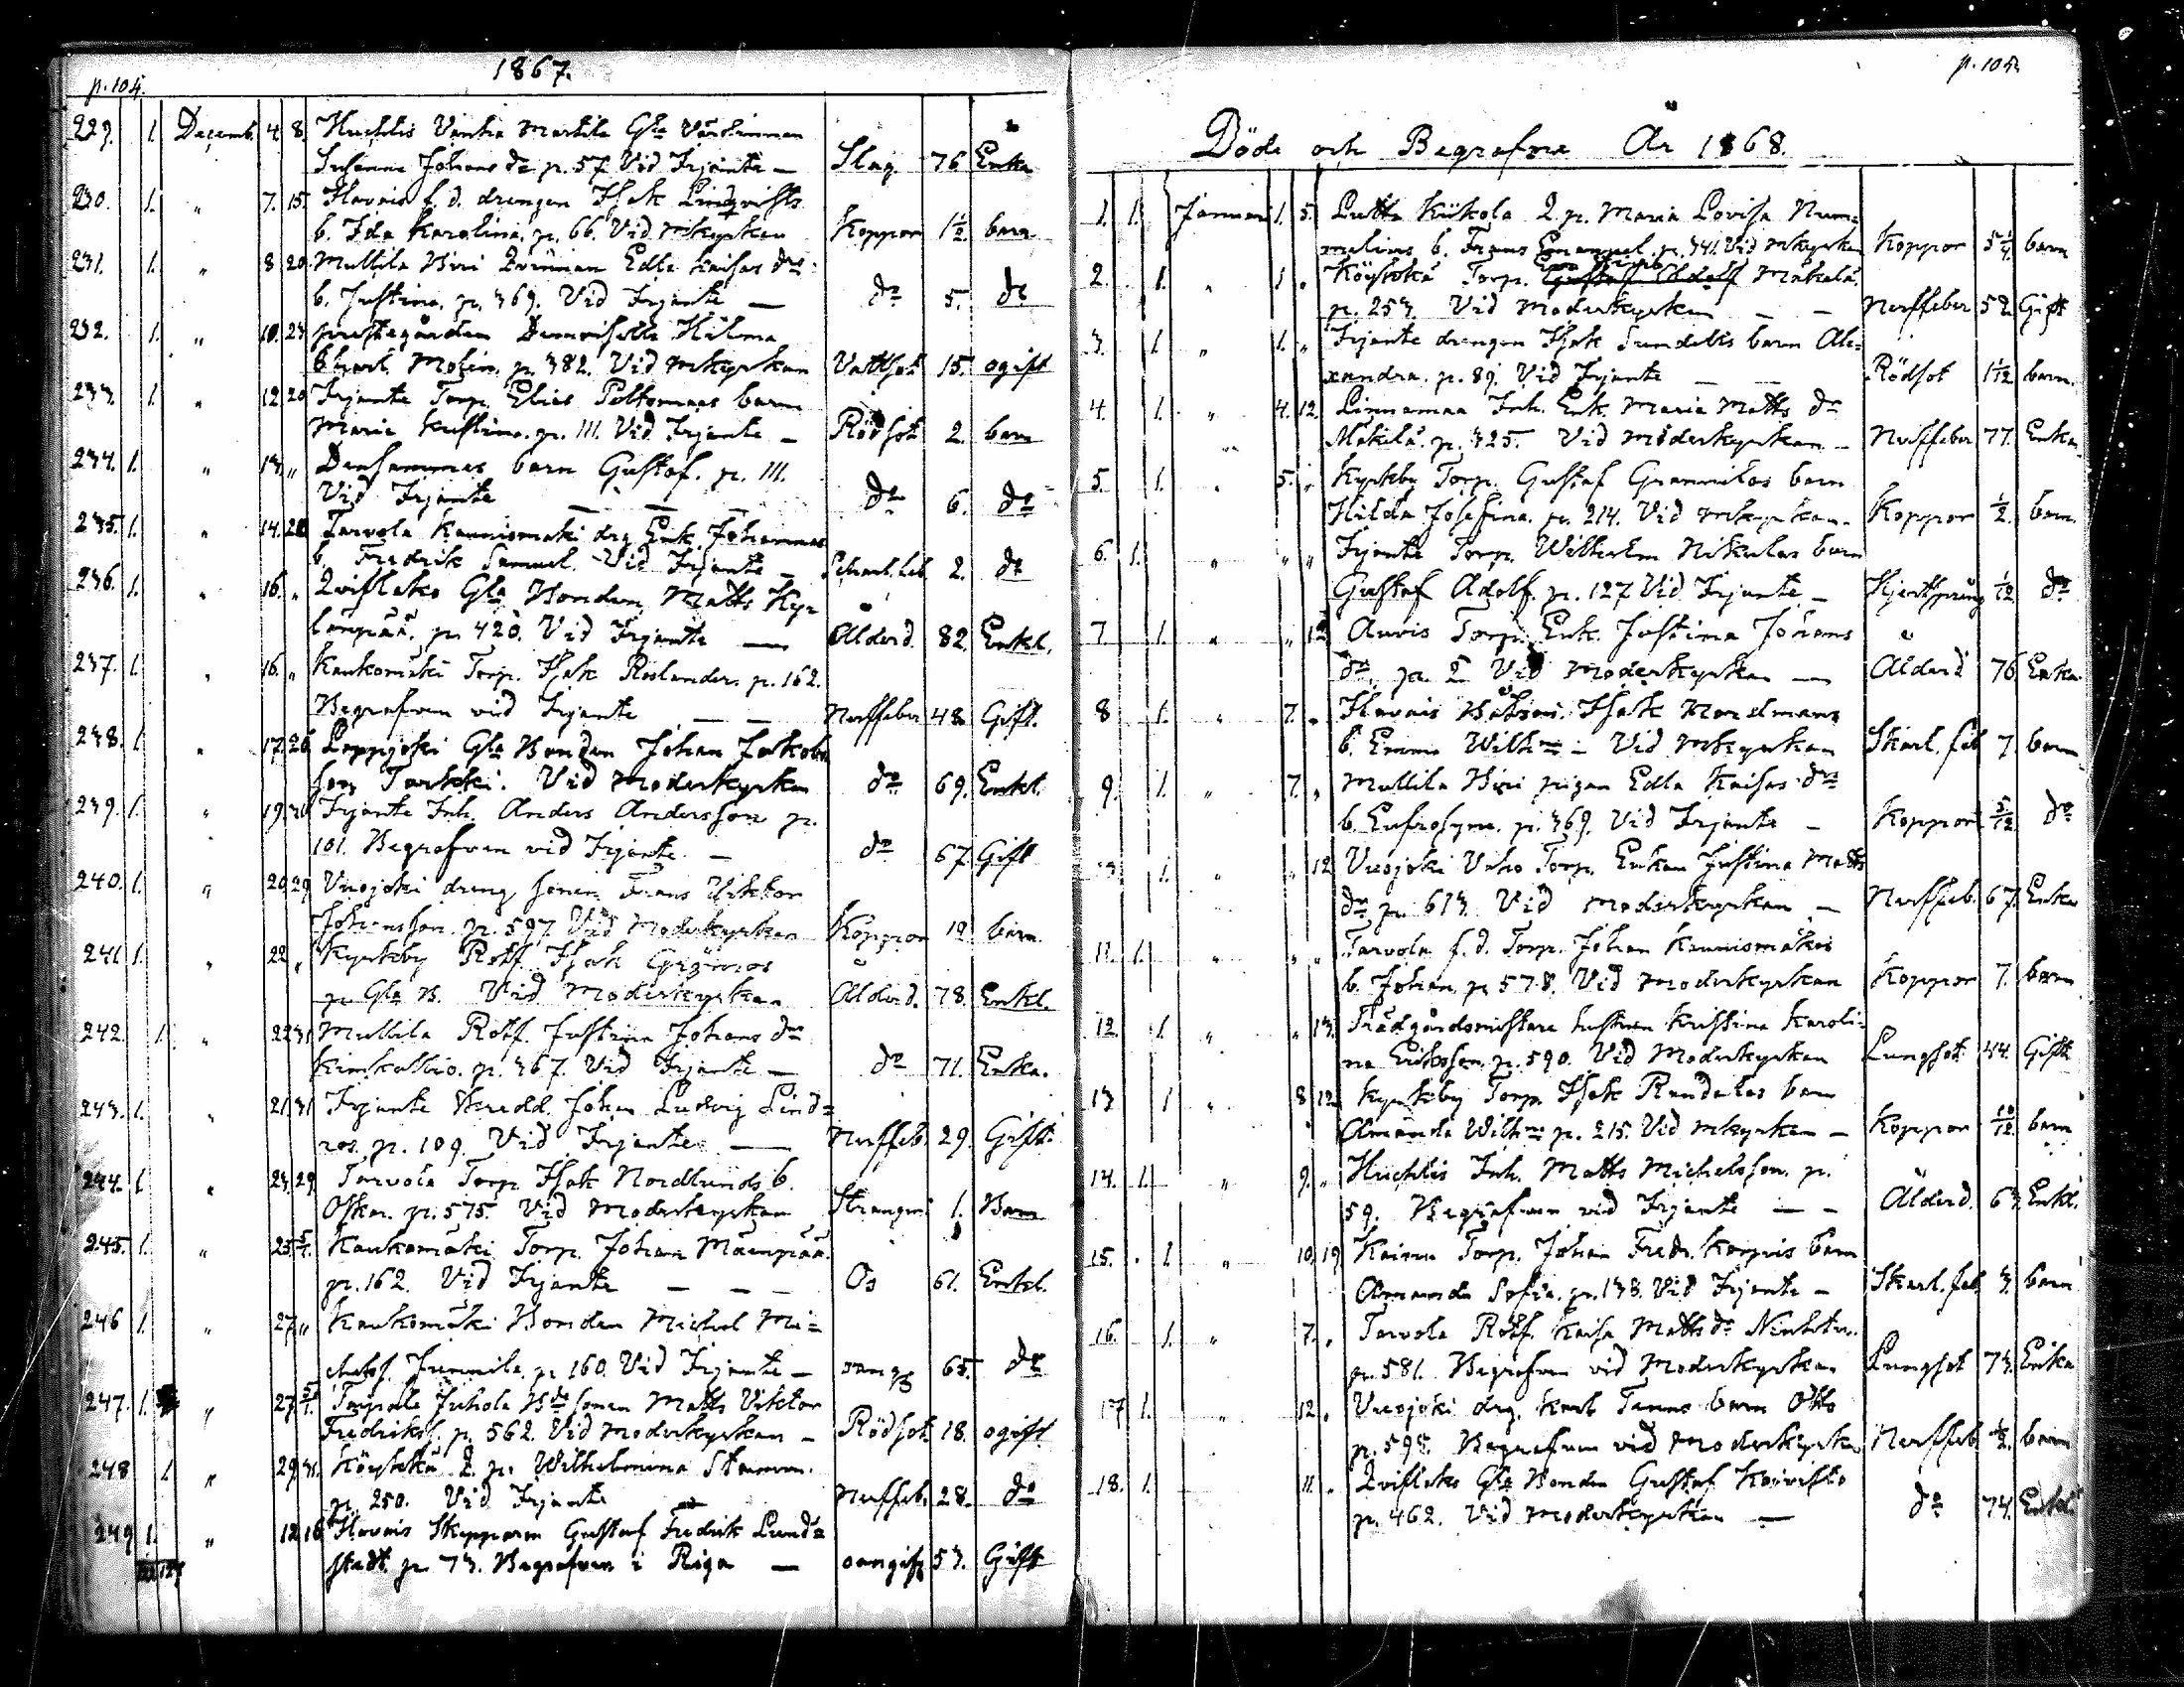 p. 104.
1867.
229. 1. Decemb. 4. 8. Huchtis Vanha Martila Gla Värdinnan
Susanna Johans dr p. 57. Vid Irjante — Slag. 76 Enka
230. 1. " 7. 15. Havnis f. d. drengen Isak Lindqvists
b. Ida Karolina. p. 66. Vid Mkyrkan Koppor 1½. barn
231. 1. " 8 20 Mullila Biri Qvinnan Edla Kaisas drs
b. Justina. p. 369. Vid Irjante — do 5. do
232. 1. " 10. 23 prestegården Demoiselle Hilma
Molin. p. 382. Vid Mkyrkan Vattsot 15. ogift
233. 1. " 12 20 Irjante Torp. Elias Poltomaas barn
Maria Kristina. p. 111. Vid Irjante — Rödsot 2. barn
234. 1. " 13. " Densammes barn Gustaf. p. 111.
Vid Irjante — — — do 6. do
235. 1. " 14. 20 Tarvola Kaunismäki drg Enk. Johannas
b. Fredrik Samuel. Vid Irjante — Scharl. feb. 2. do
236. 1. " 16. " Qvifleks Gla Bonden Matts Kyr
länpää. p. 420. Vid Irjante — Ålderd. 82. Enkl.
237. 1. " 16. " Kaukomäki Torp. Isak Roslander. p. 162.
Begrafven vid Irjante — — Nerffeber 48 Gift.
238. 1. " 17. 26 Leppijoki Gla Bonden Johan Jakobs
son Tarkki. Vid Moderkyrkan do 69. Enkl.
239. 1. " 19. 26 Irjante Inh. Anders Andersson p.
101. Begrafven vid Irjante — do 67. Gift
240. 1. " 20 29 Vuojoki dreng sonen Frans Viktor
Johansson. p. 597. Vid Moderkyrkan Koppor 12 barn
241. 1. " 22 " Kyrkby Rotf. Isak Grönroos
p. Gla B. Vid Moderkyrkan Ålderd. 78. Enkl.
242. 1. " 22 31 Mullila Rotf. Justina Johans dr
Kinkallio. p. 367. Vid Irjante — do 71. Enka.
243. 1. " 21 31 Irjante Skredd. Johan Ludvig Lind=
ros p. 109. Vid Irjante — Nerffeb. 29. Gift.
244. 1. " 23. 29. Tarvola Torp. Isak Nordlunds b.
Oskar. p. 575. Vid Moderkyrkan 1. Barn
245. 1. " 25. 5/1. Kaukomäki Torp. Johan Mäenpää.
p. 162. Vid Irjante — — — Os 61. Enkl.
246 1. " 27 " Kaukomäki Bonden Michel Mi=
chelss. Junnila. p. 160. Vid Irjante — oangif 65. do
247. 1. " 27 5/1. Taipale Juhola Bde sonen Matts Viktor
Fredrikss. p. 562. Vid Moderkyrkan — Rödsot. 18. ogift.
248 1. " 29 31. Köykkä Q. p. Wilhelmina
p. 250. Vid Irjante — Nerffeb. 28. do
249 1. " 12 16 Havnis Skepparen Gustaf Fredrik Lund=
stedt p. 73. Begrafven i Riga — oangif 53. Gift
p. 105.
Döde och Begrafne År 1868.
1. 1. Januari 1. 5. Lutta Kiikola Q. p. Maria Lovisa Num=
melins b. Frans Emanuel. p. 341. Vid Mkyrkan Koppor 5¼ barn
2. 1. " 1 " Köykkä Torp. Gustaf Adolf Mäkelä.
p. 253. Vid Moderkyrkan — — Nerffeber 52. Gift
3. 1. " 1. " Irjante drengen Isak Sundells barn Ale=
xandra. p. 89. Vid Irjante — — Rödsot 1 1/12 barn.
4. 1. " 4. 12. Linnamaa Inh. Enk. Maria Matts dr
Mäkilä. p. 325. Vid Moderkyrkan — Nerffeber 77. Enka
5. 1. " 5. " Kyrkby Torp. Gustaf Grannilas barn
Hilda Josefina. p. 214. Vid Mkyrkan. Koppor ½. barn.
6. 1. " " " Irjante Torp. Wilhelm Nikulas barn
Gustaf Adolf. p. 127 Vid Irjante — Hjertsprång 1/12 do
7 1. " " 12 Auvis Torp. Enk. Justina Johans
dr. p. 2 Vid Moderkyrkan — Ålderd 76 Enka
8 1. " 7. " Havnis Båtsm. Isak Nordmans
b. Emma Wilhna — Vid Mkyrkan Skarl. feb 7 barn
9. 1. " 7. " Mullila Biri pigan Edla Kaisas drs
b. Eufrosyne. p. 369. Vid Irjante — Koppor 5/12 do
10. 1. " " 12 Vuojoki Torp. Enkan Justina Matts
dr p. 613. Vid Moderkyrkan — Nerffeb. 67. Enka
11. 1. " " " Tarvola f. d. Torp. Johan Kaunismäkis
b. Johan. p. 578. Vid Moderkyrkan Koppor 7. barn
12. 1 " " 13. Trädgårdsmästare hustrun Kristina Karoli=
na Eriksson. p. 590. Vid Moderkyrkan Lungsot 44. Gift
13 1 " 8 12 Kyrkby Torp. Isak Randalas barn
Amanda Wilhna p. 215. Vid Mkyrkan — Koppor 10/12 barn
14. 1. " 9. " Huchtis Inh. Matts Michelsson. p.
59. Begrafven vid Irjante — — Ålderd. 63. Enkl.
15. 1. " 10. 19 Kainu Torp. Johan Fredr. Korpis barn
Amanda Sofia. p. 138. Vid Irjante — Skarl. feb 3. barn
16. 1. " 7. " Tarvola Rotf. Kaisa Matts dr
p. 581. Begrafven vid Moderkyrkan Lungsot 73. Enka
17 1. " 12. " Vuojoki drg. Karl Tanns barn Otto
p. 595. Begrafven vid Moderkyrkan Nerffeb ½. barn
18. 1. " 11. " Qvifleks Gla Bonden Gustaf Koivisto
p. 462. Vid Moderkyrkan — do 74. Enkl